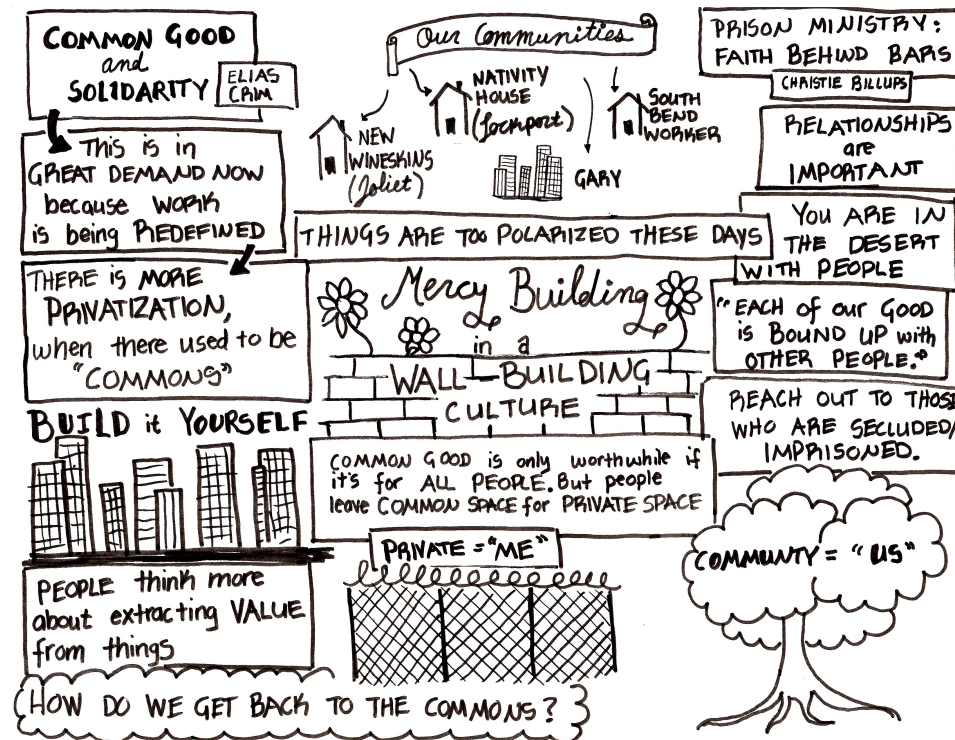 COMMON GOOD
and
SOLIDARITY
ELIAS
CRIM
This is in
GREAT DEMAND NOW
because WORK
is being REDEFINED
THERE is MORE
PRIVATIZATION,
when there used to be
"COMMONS"
BUILD it YOURSELF
PEOPLE think more
about extracting VALUE
from things
HOW DO WE GET BACK TO THE COMMONS?
Our Communities
NEW
WINESKINS
(Joliet)
NATIVITY
HOUSE
(Lockport)
GARY
SOUTH
BEND
WORKER
THINGS ARE TOO POLARIZED THESE DAYS
Mercy Building
in a
WALL-BUILDING
CULTURE
COMMON GOOD is only worthwhile if
it's for ALL PEOPLE. But people
leave COMMON SPACE for PRIVATE SPACE
PRIVATE = "ME"
PRISON MINISTRY:
FAITH BEHIND BARS
CHRISTIE BILLUPS
RELATIONSHIPS
are
IMPORTANT
YOU ARE IN
THE DESERT
WITH PEOPLE
"EACH OF OUR GOOD
is BOUND UP with
OTHER PEOPLE."
REACH OUT TO THOSE
WHO ARE SECLUDED/
IMPRISONED.
COMMUNTY = "US"